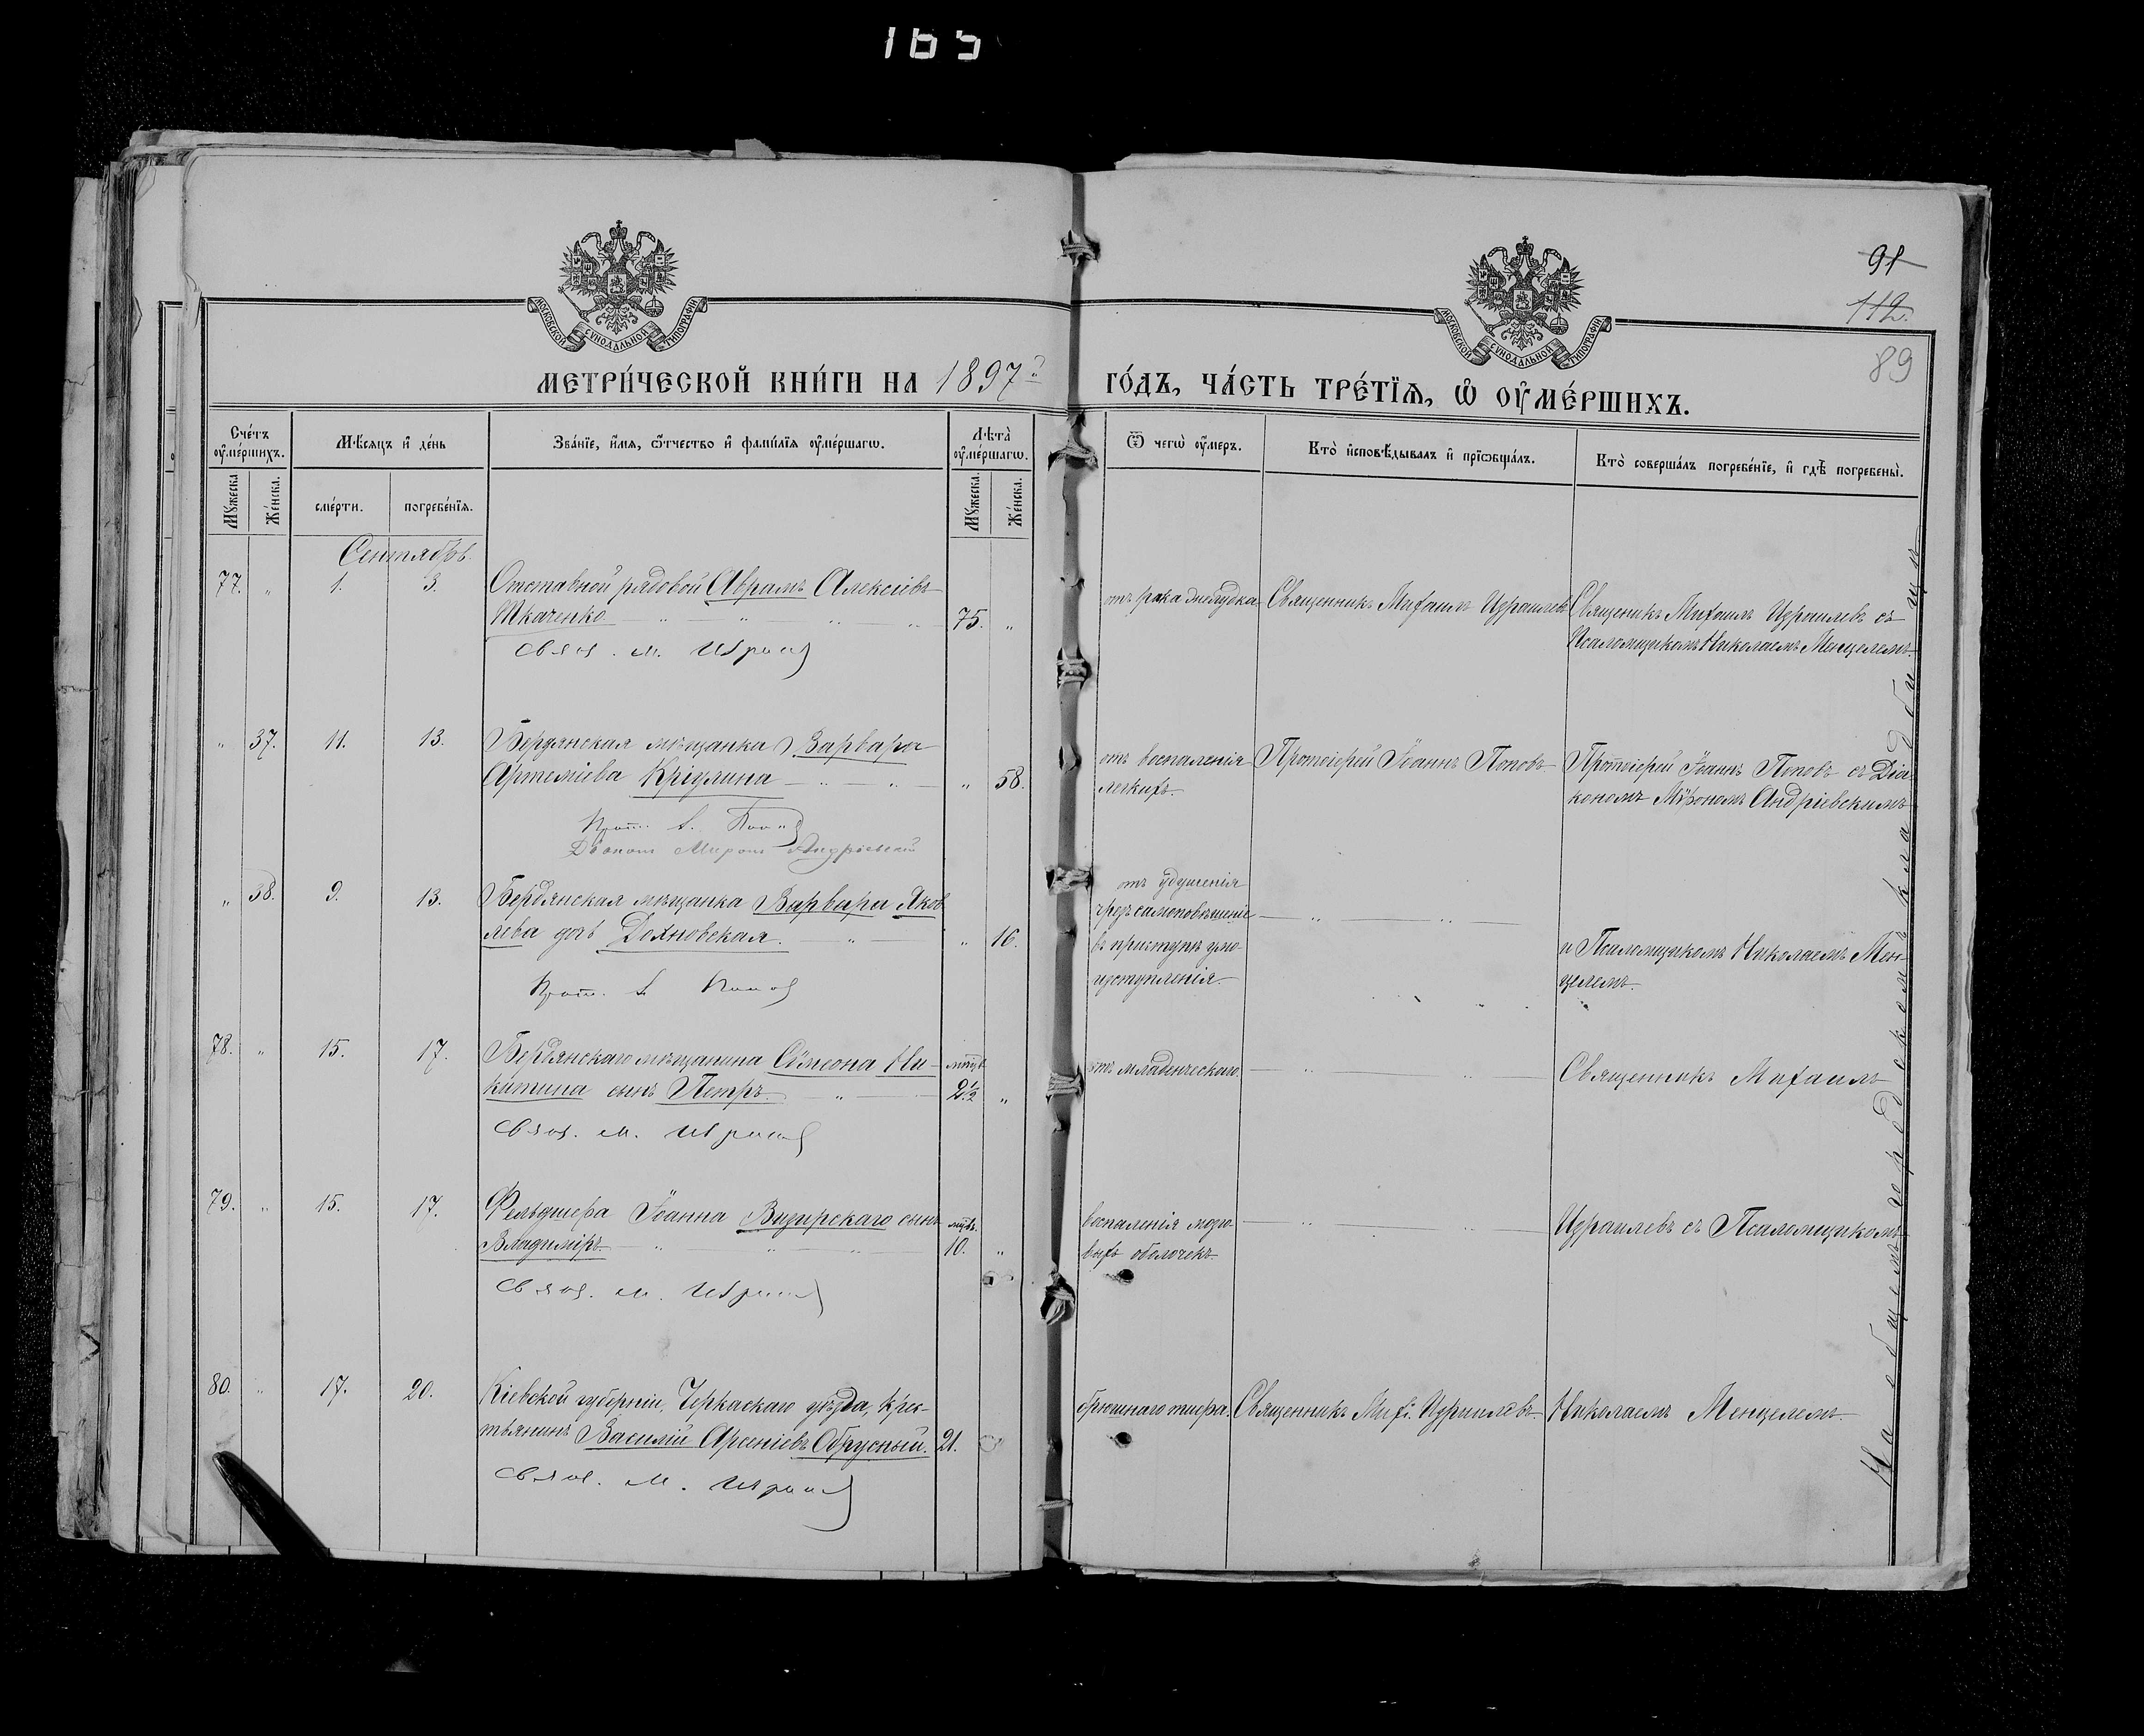 165
91
112.
89
МОСКОВСКОЙ СѴНОДАЛЬНОЙ ТИПОГРАФІИ
МОСКОВСКОЙ СѴНОДАЛЬНОЙ ТИПОГРАФІИ
МЕТРИ́ЧЕСКОЙ КНИ́ГИ НА 1897 ГО́ДЪ, ЧА́СТЬ ТРЕ́ТЇѦ, Ѽ ОУ҆МЕ́РШИХЪ.
Сче́тъ оу҆ме́ршихъ.
Мꙋ́жеска
Же́нска.
Мѣ́сяцъ и҆ де́нь
сме́рти.
погребе́нїѧ.
Зва́нїе, и҆́мѧ, ѻ҆́тчество и҆ фами́лїѧ оу҆ме́ршагѡ.
Лѣ̀та оу҆ме́ршагѡ.
Мꙋ́жеска.
Же́нска.
Ѿ чегѡ̀ оу҆́меръ.
Кто̀ и҆сповѣ́дывалъ и҆ прїѡбща́лъ.
Кто̀ соверша́лъ погребе́нїе, и҆ гдѣ̀ погребены̀.
Сентябрь.
77. " 1. 3. Отставной рядовой Аврамъ Алексіевъ
Ткаченко 75. "
Свящ. М. Изра
отъ рака желудка
Священникъ Михаилъ Израилевъ
Священикъ Михаилъ Израилевъ съ
Псаломщикомъ Николаемъ Менцелемъ.
" 37. 11. 13. Бердянская мѣщанка Варвара
Артеміева Кридлина " 58.
Прот. І. Попов
Діаконъ Миронъ Андріевскій
отъ воспаленія
легкихъ.
Протоіерей Іоаннъ Поповъ
Протоіерей Іоаннъ Поповъ съ Діа-
кономъ Мѵрономъ Андріевскимъ
" 38. 9. 13. Бердянская мѣщанка Варвара Яков
лева дочь Дохновская. " 16.
Прот. І. Попов
отъ удушенія
чрезъ самоповѣшеніе
въ приступѣ умо-
изступленія.
и Псаломщикомъ Николаемъ Мен-
целемъ.
78. " 15. 17. Бердянскаго мѣщанина Сѵмеона Ни-
китина сынъ Петръ 2½ "
Свящ. М. Изра
отъ младенческаго.
Священникъ Михаилъ
79. " 15. 17. Фельдшера Іоанна Визирскаго сынъ мцвъ.
Владиміръ 10. "
Свящ. М. Изра
воспаленія мозго-
выхъ оболочекъ.
Израилевъ съ Псаломщикомъ
80. " 17. 20. Кіевской губерніи, Черкаскаго уѣзда, крес-
тьянинъ Василій Арсеніевъ Обрусный. 21.
Свящ. М. Изра
брюшнаго тифа.
Священникъ Мих. Израилевъ.
Николаемъ Менцелемъ.
На общемъ городскомъ кладбищѣ